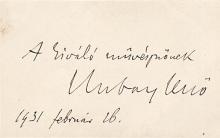 A kiváló művésznőnek
Hubay Jenő
1931 február 16.